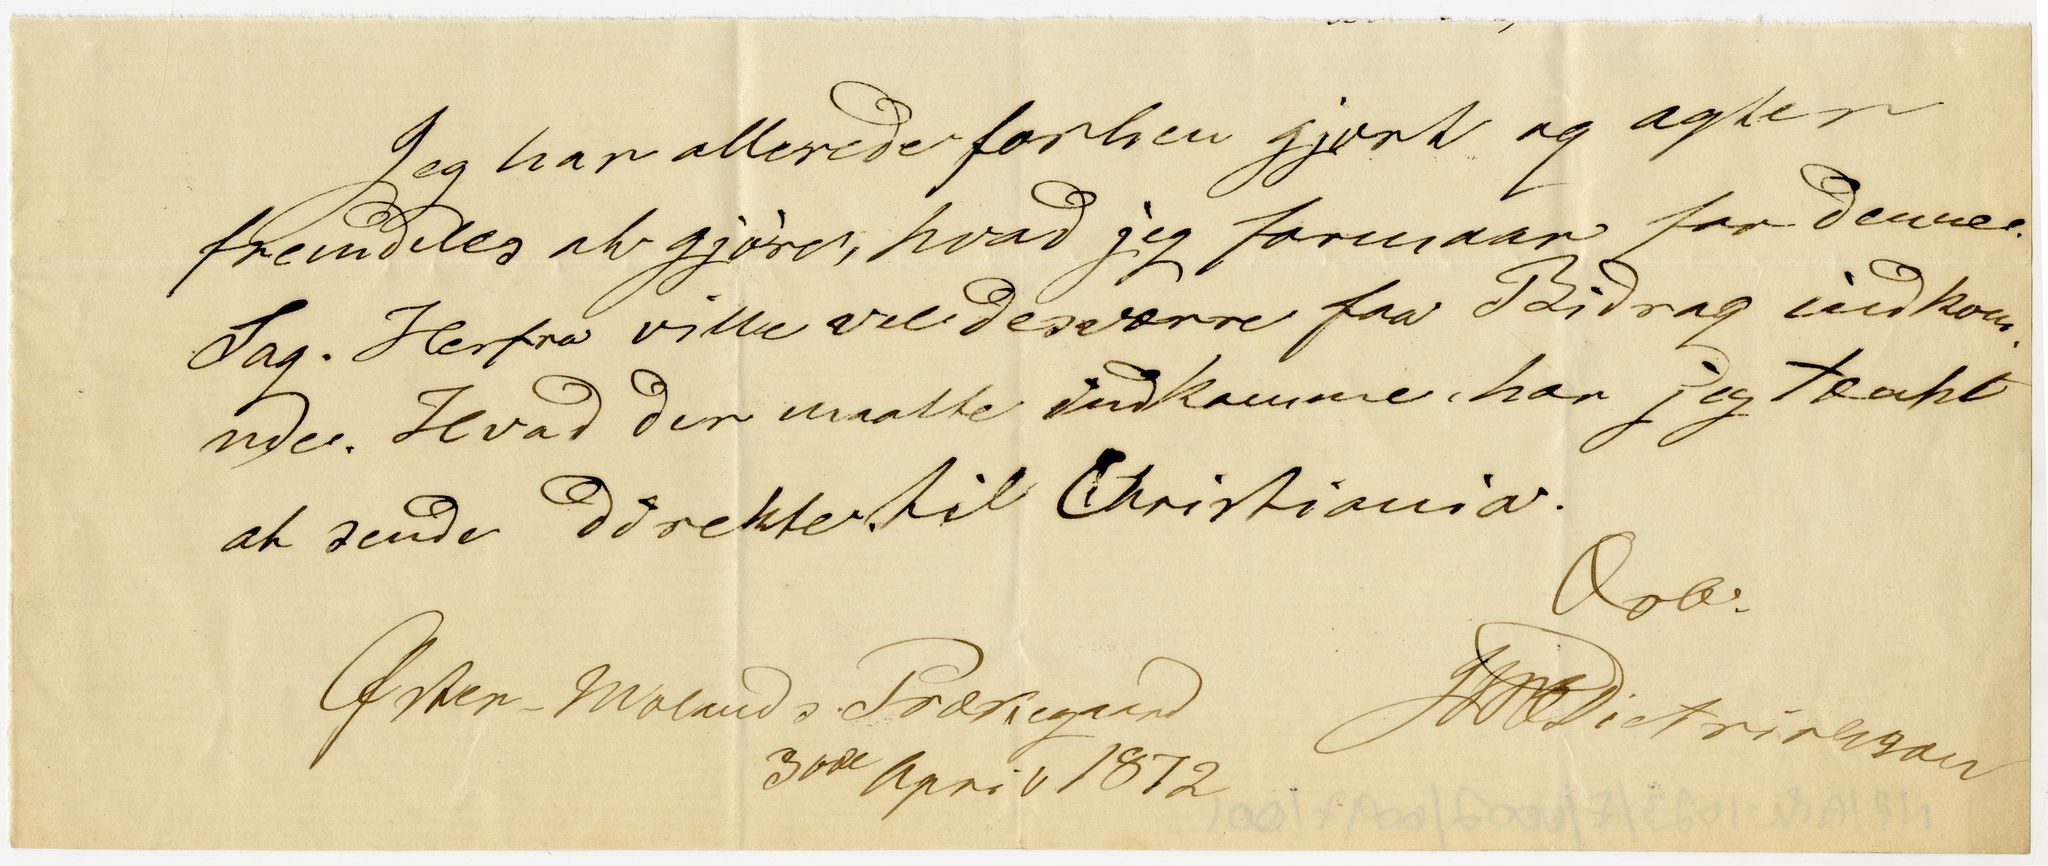 Jeg har allerede forhen gjort og agter
fremdeles at gjöre, hvad jeg formaar for denne
Sag. Herfra ville vel desværre faa Bidrag indkom-
me. Hvad der maatte indkomme, har jeg tænkt
at sende direkte til Christiania.
Ærb.
Øster-Molands Præstegaard
Dietrichson
30de April 1872